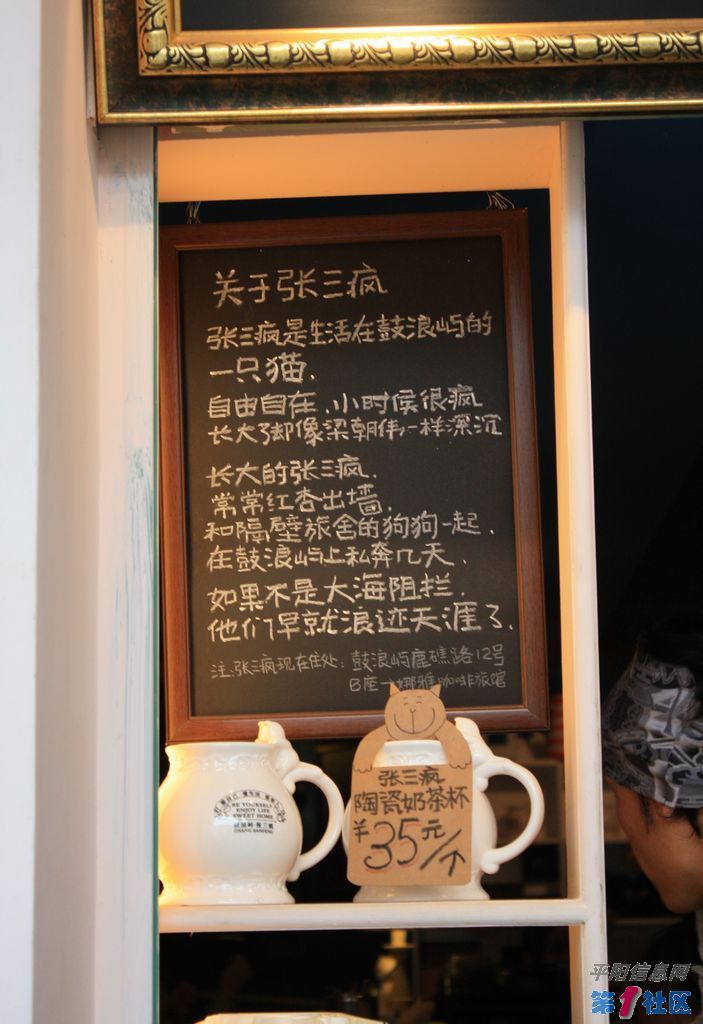 关于张三疯
张三疯是生活在鼓浪屿的
一只猫.
自由自在.小时候很疯
长大了却像梁朝伟一样深沉
长大的张三疯.
常常红杏出墙.
和隔壁旅舍的狗狗一起.
在鼓浪屿上私奔几天.
如果不是大海阻拦.
他们早就浪迹天涯了.
注.张三疯现在住处:鼓浪屿鹿礁路12号
B座→娜雅咖啡旅馆
BE YOURSELF
ENJOY LIFE
SWEET HOME
ZHANG SANFENG
张三疯
陶瓷奶茶杯
¥35元/个
平阳信息网
第1社区